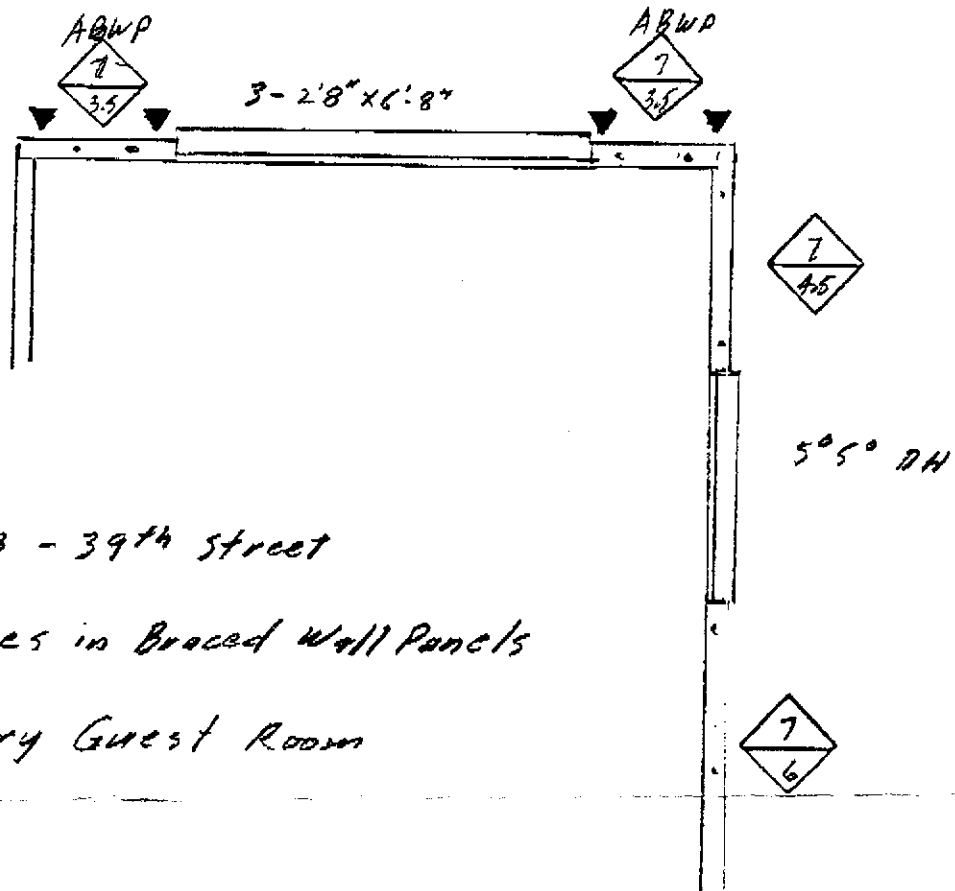 ABWP
ABWP
7
3.5
3-2'8"x6'-8"
7
3.5
7
4.5
5°5° DH
3 - 39th Street
es in Braced Wall Panels
ry Guest Room
7
6